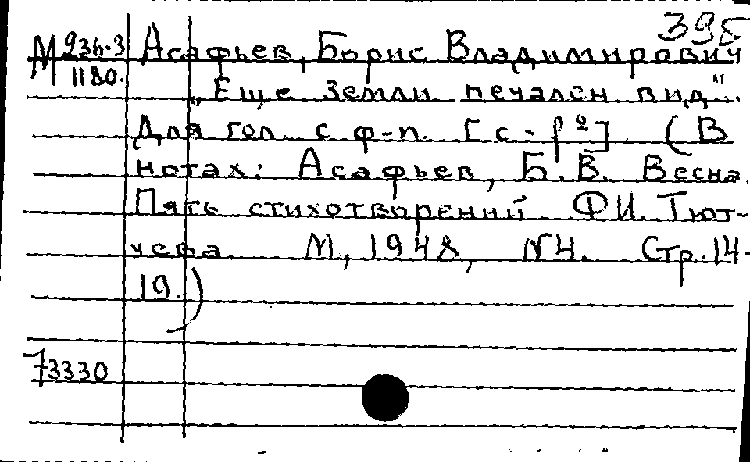 395
М 936-3 Асафьев, Борис Владимирович
1180.
„Еще земли печален вид".
Для гол. с ф-п. [c-f²] (В
нотах: Асафьев, Б.В. Весна.
Пять стихотворений Ф.И. Тют-
чева. М, 1948, №4. Стр. 14-
19.)
73330